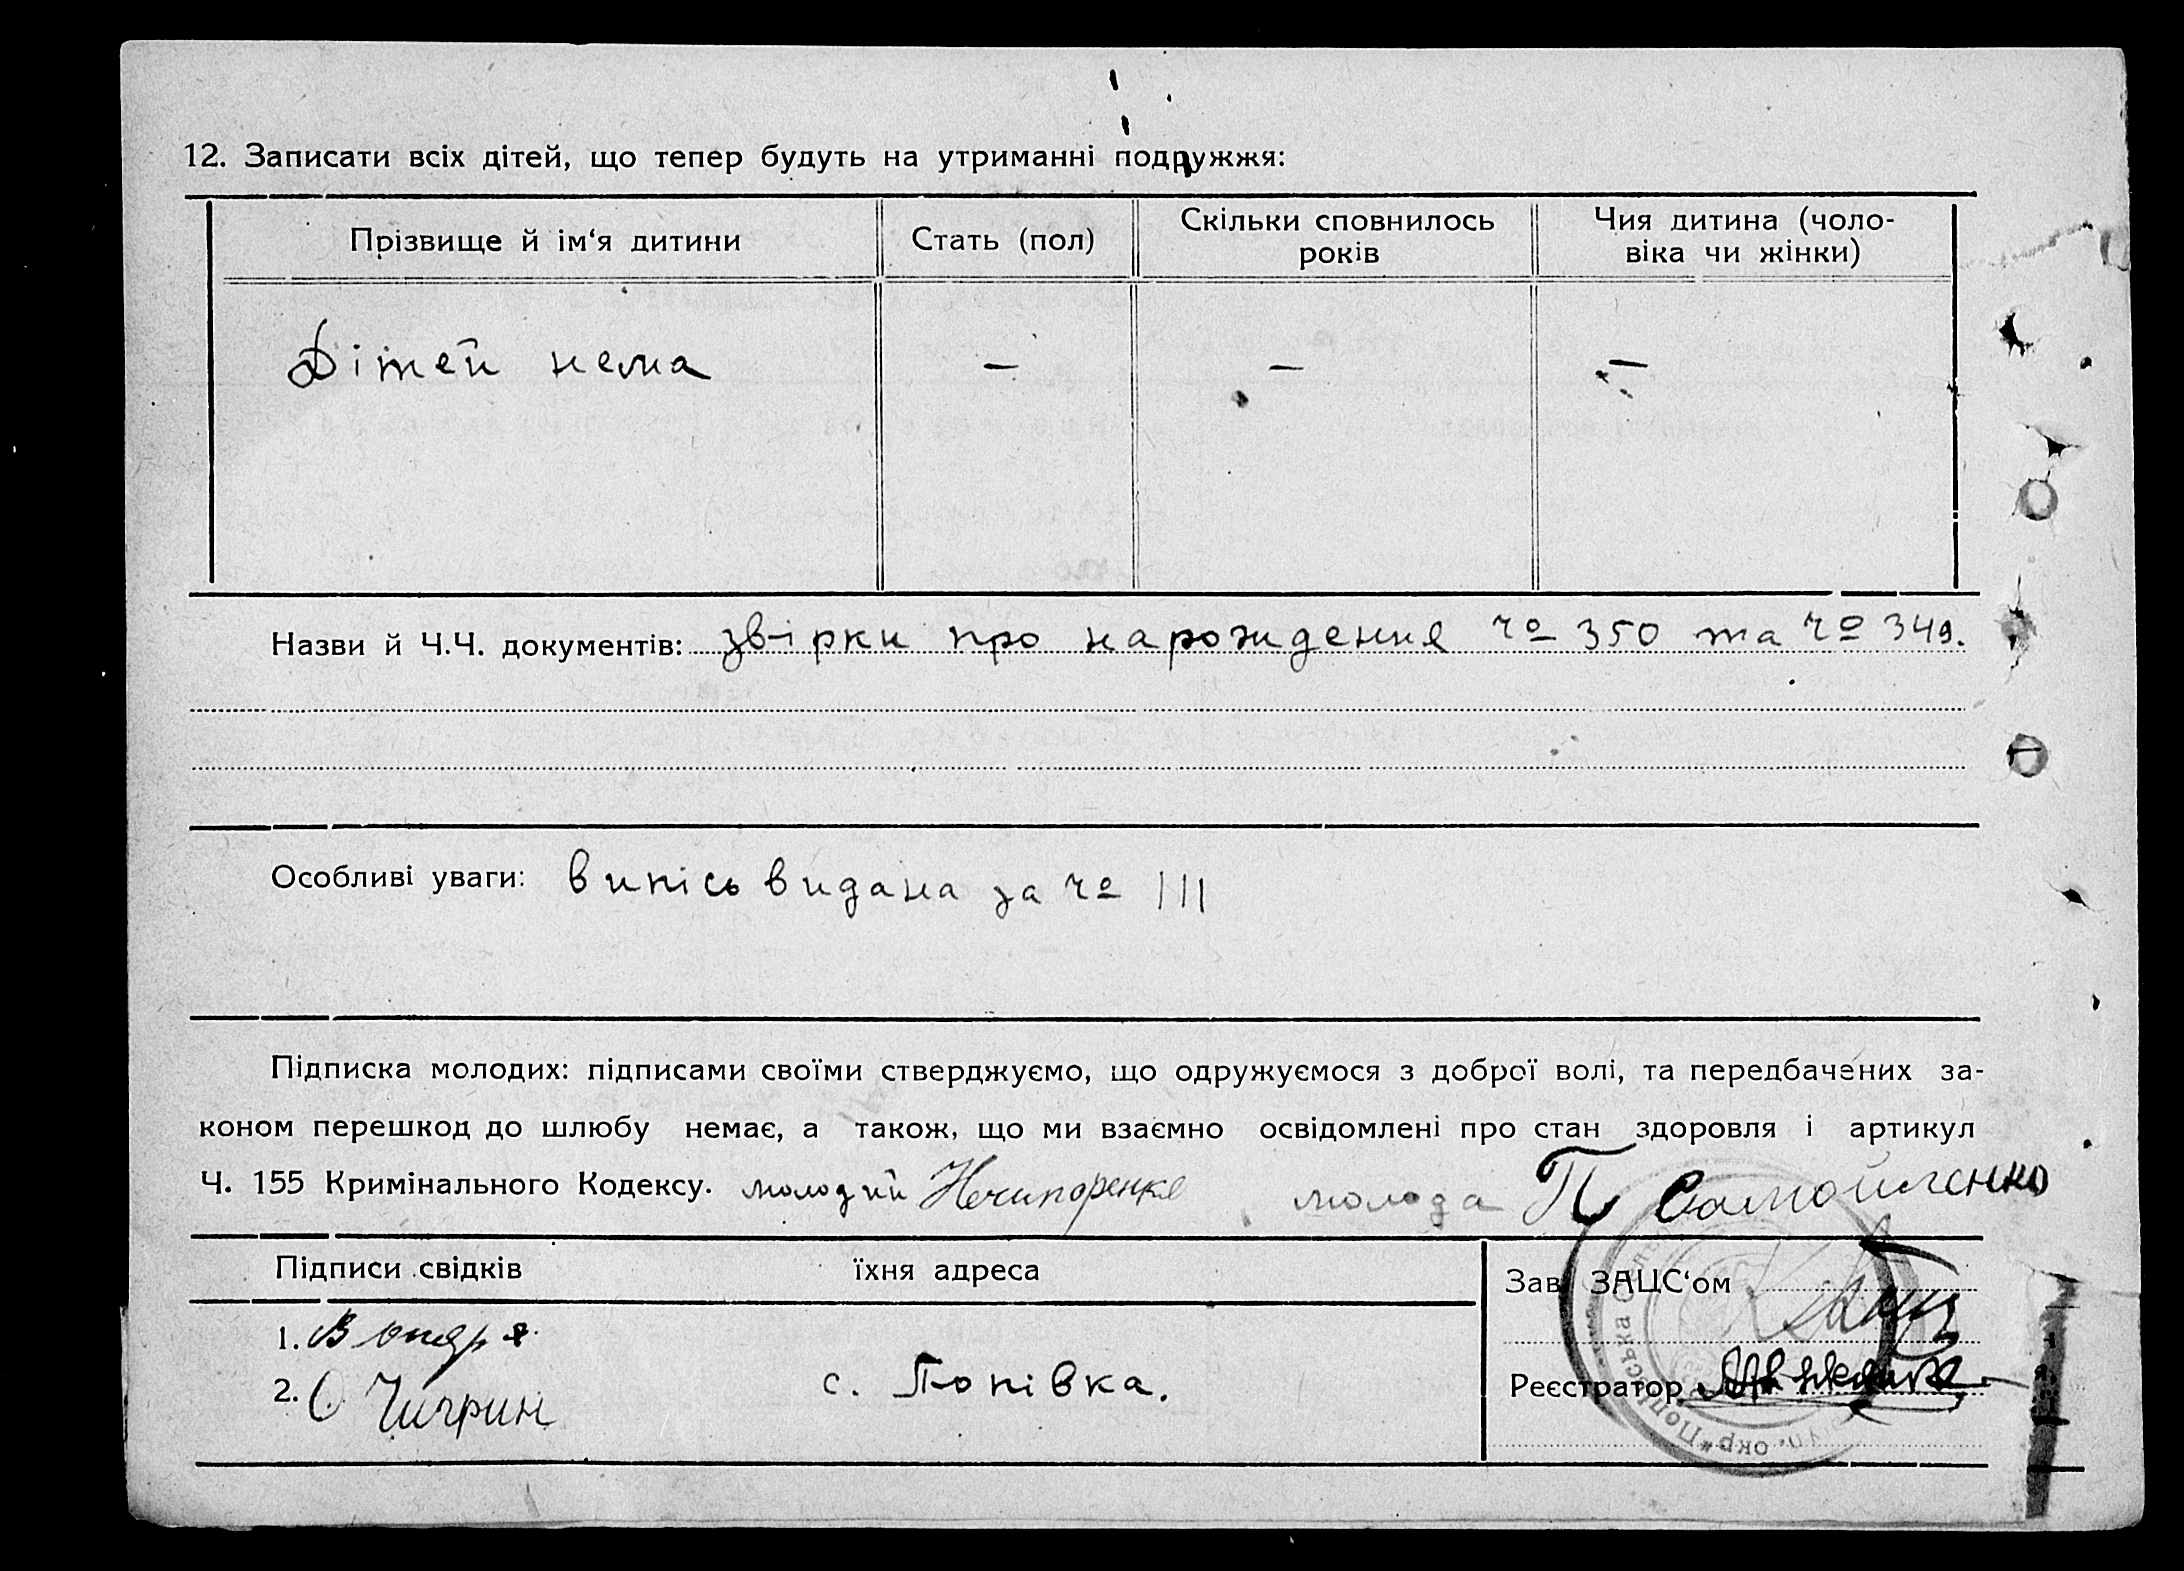 12. Записати всіх дітей, що тепер будуть на утриманні подружжя:
Прізвище й ім‘я дитини
Стать (пол)
Скільки сповнилось
років
Чия дитина (чоло-
віка чи жінки)
Дітей нема — — —
Назви й Ч.Ч. документів: звірки про нарождення чо 350 та чо 349.
Особливі уваги: випісь видана за чо 111
Підписка молодих: підписами своїми стверджуємо, що одружуємося з доброї волі, та передбачених за-
коном перешкод до шлюбу немає, а також, що ми взаємно освідомлені про стан здоровля і артикул
Ч. 155 Кримінального Кодексу. молодий Нечипоренко молода П Самойленко
Підписи свідків їхня адреса
Зав. ЗАЦС‘ом
1.
2. О Чигрин с. Попівка.
Реєстратор